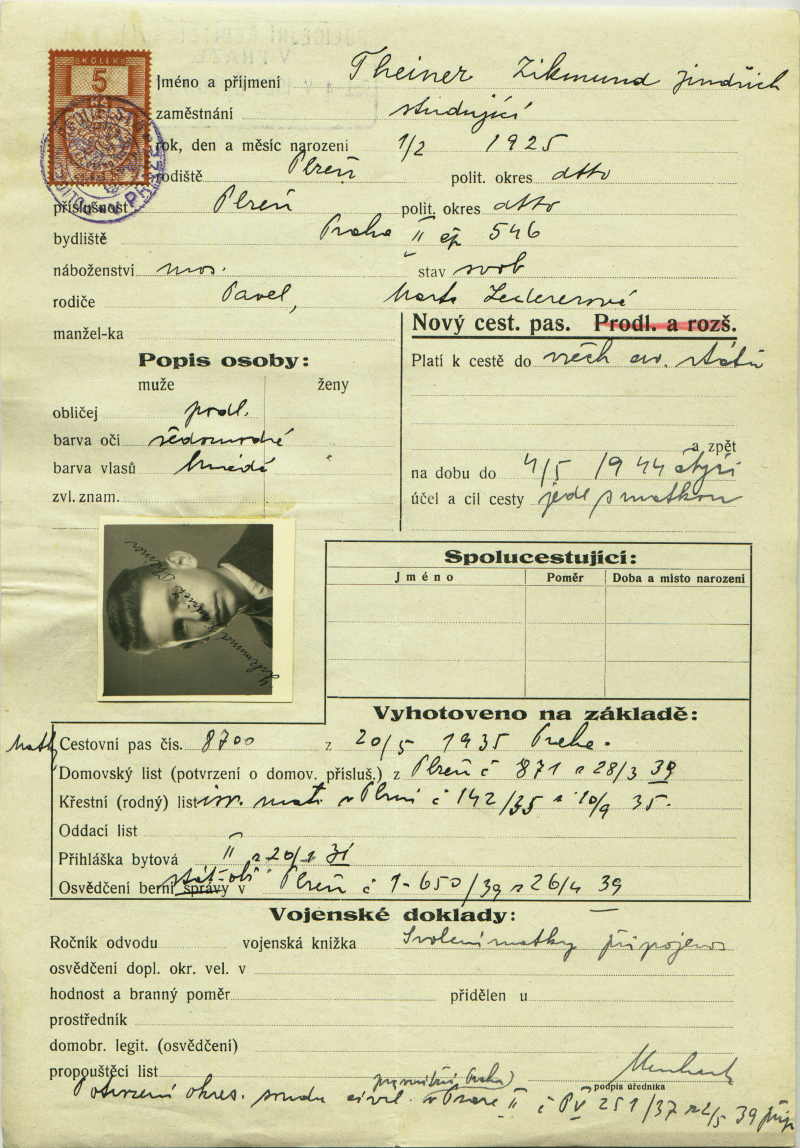 KOLEK
5
Jméno a příjmení Theiner Zikmund Jindřich
zaměstnání studující
rok, den a měsíc narození 1/2 1925
rodiště Plzeň polit. okres dtto
příslušnost Plzeň polit. okres dtto
bydliště Praha II čp 546
náboženství mos. stav svob
rodiče Pavel, Marta Ledererová
manžel-ka
Nový cest. pas. Prodl. a rozš.
Platí k cestě do všech ev. států
a zpět
na dobu do 4/5 1944 čtyři
účel a cíl cesty jede s matkou
Popis osoby:
muže ženy
obličej podl.
barva očí šedomodré
barva vlasů hnědé
zvl. znam.
Spolucestující:
Jméno Poměr Doba a místo narození
Vyhotoveno na základě:
matky Cestovní pas čís. 8700 z 20/5 1935 Praha.
Domovský list (potvrzení o domov. přísluš.) z Plzeň č 871 z 28/3 39
Křestní (rodný) list isr. mat. v Plzni č 142/35 z 10/9 35.
Oddací list
Přihláška bytová II z 20/1 31
Osvědčení berní správy v Plzeň č 1-650/39 z 26/4 39
Vojenské doklady:
Ročník odvodu vojenská knížka Svolení matky připojeno
osvědčení dopl. okr. vel. v
hodnost a branný poměr přidělen u
prostředník
domobr. legit. (osvědčení)
propouštěcí list
podpis úředníka
Potvrzení okres. soudu civil. v Praze II č P V 251/37 z 2/5 39 přip